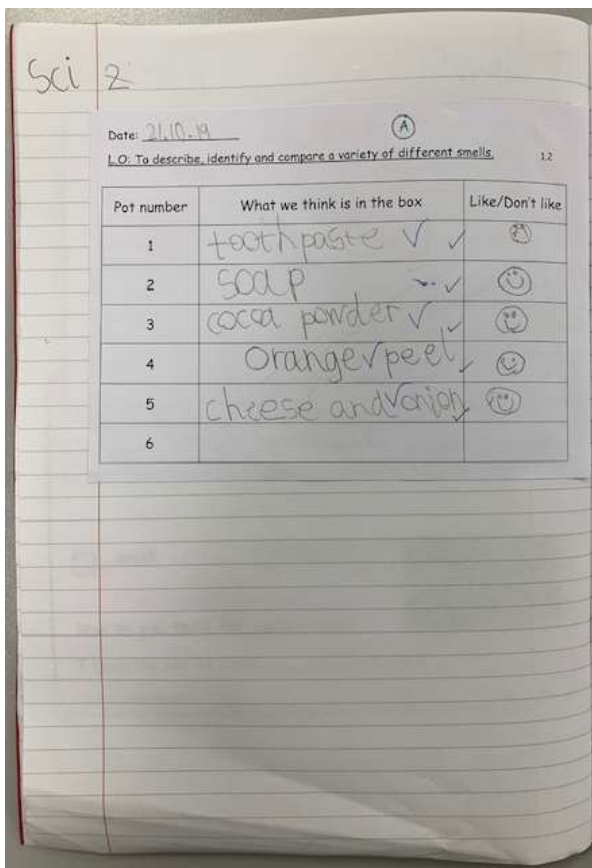 Sci 2
A
Date: 21.10.19
L.O: To describe, identify and compare a variety of different smells.
12
Pot number What we think is in the box Like/Don't like
1 toothpaste
2 soap
3 cocoa powder
4 orange peel
5 cheese and onion
6